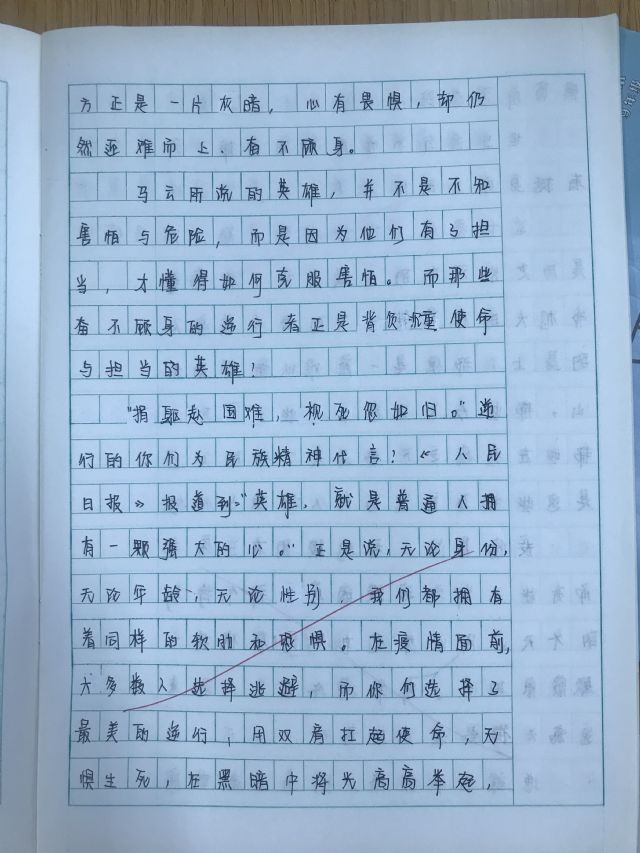 方正是一片灰暗，心有畏惧，却仍
然迎难而上，奋不顾身。
马云所说的英雄，并不是不知
害怕与危险，而是因为他们有了担
当，才懂得如何克服害怕。而那些
奋不顾身的逆行者正是背负沉重使命
与担当的英雄！
“捐躯赴国难，视死忽如归。”逆
行的你们为民族精神代言！《人民
日报》报道到：“英雄，就是普通人拥
有一颗强大的心。”正是说，无论身份，
无论年龄，无论性别，我们都拥有
着同样的软肋和恐惧。在疫情面前，
大多数人选择逃避，而你们选择了
最美的逆行，用双肩扛起使命，无
惧生死，在黑暗中将光高高举起，